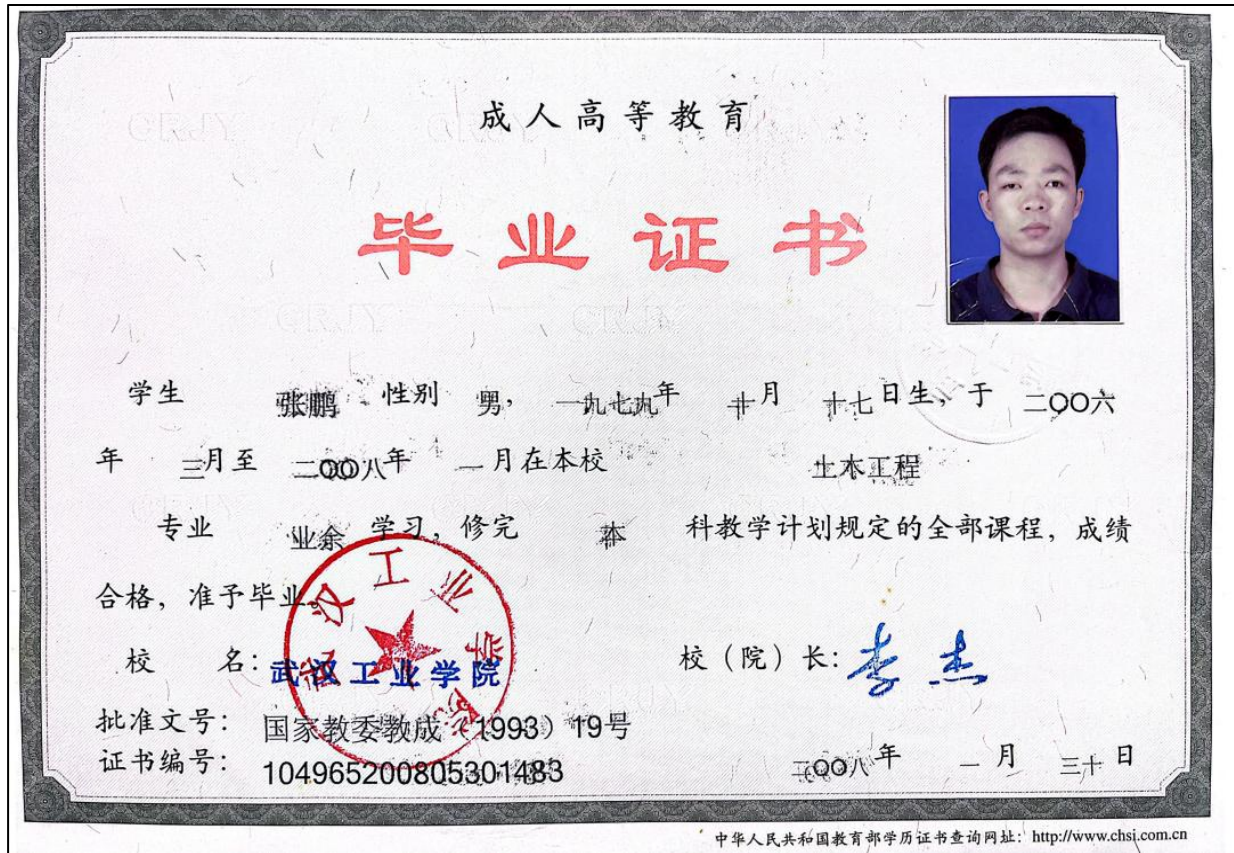 成人高等教育
毕业证书
学生 张鹏 性别 男, 一九七九年 月 十七日生, 于 二〇〇六
年 三月至 二〇〇八年 一月在本校 土木工程
专业 业余 学习, 修完 本 科教学计划规定的全部课程, 成绩
合格, 准予毕业。
校 名: 武汉工业学院 校（院）长: 李杰
武汉工业学院
批准文号: 国家教委教成（1993）19号
证书编号: 104965200805301483 二〇〇八年 一月 三十日
中华人民共和国教育部学历证书查询网址: http://www.chsi.com.cn